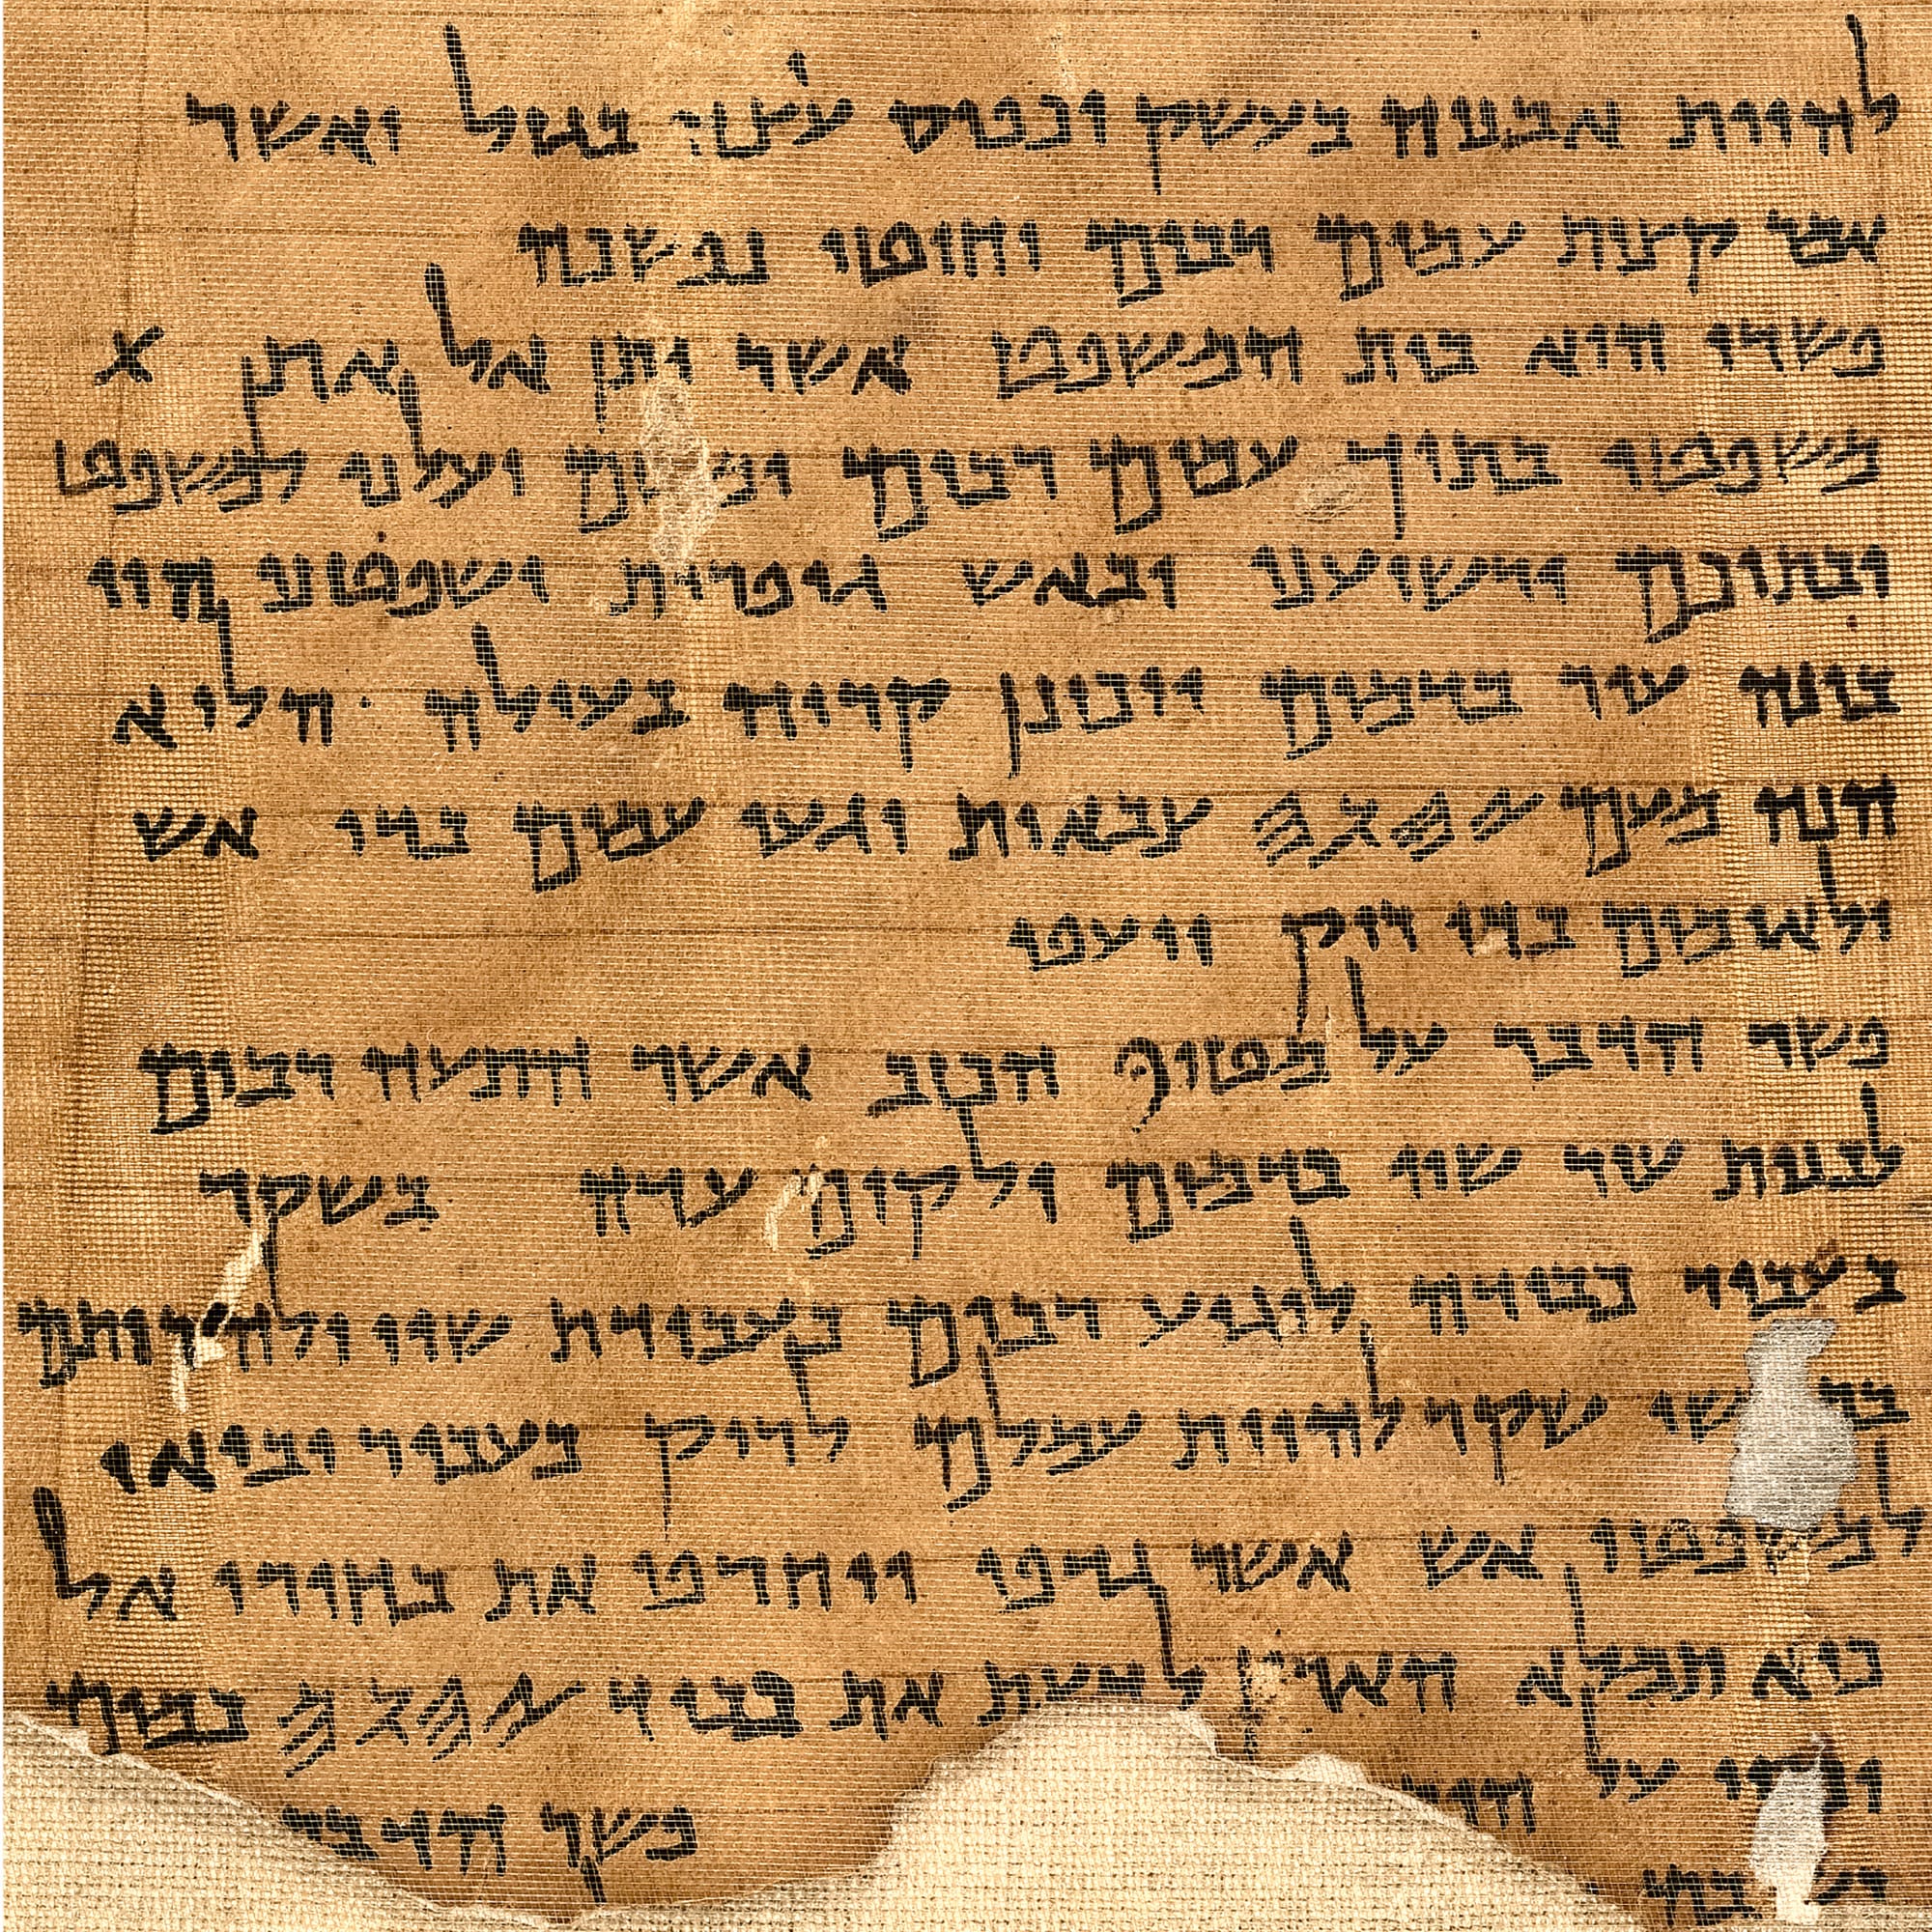 להיות אבניה בעשק וכפיס עיצה בגזל ואשר
אמר קצות עמים רבים וחוטי נפשכה
פשרו הוא בית המשפט אשר יתן אל את X
משפטו בתוך עמים רבים ומשם יעלנו למשפט
ובתוכם ירשיענו ובאש גופרית ישפטנו הוי
בונה עיר בדמים ויכונן קריה בעולה הלוא
הנה מעם 𐤉𐤄𐤅𐤄 צבאות יגעו עמים בדי אש
ולאמים בדי ריק ייעפו
פשר הדבר על מטיף הכזב אשר התעה רבים
לבנות עיר שוו בדמים ולקים עדה בשקר
בעבור כבודה לוגיע רבים בעבודת שוו ולהרותם
שי שקר להיות עמלם לריק בעבור יבואו
למשפטי אש אשר גדפו ויחרפו את בחירי אל
כיא תמלא הארץ לדעת את כבוד 𐤉𐤄𐤅𐤄 כמים
יכסו על פשר הדבר